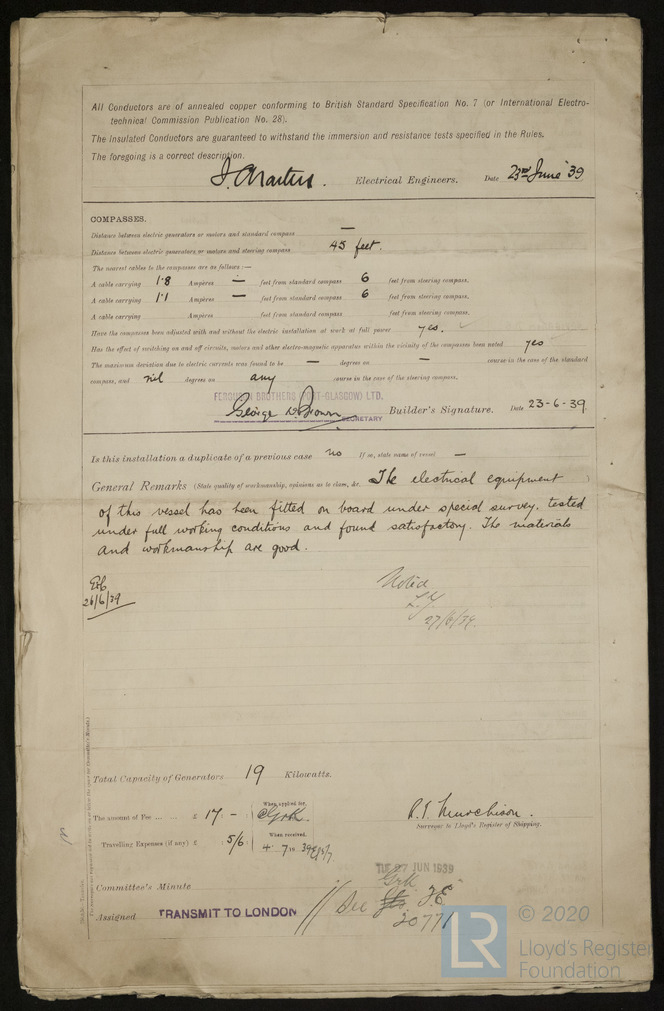 All Conductors are of annealed copper conforming to British Standard Specification No. 7 (or International Electro-
technical Commission Publication No. 28).
The Insulated Conductors are guaranteed to withstand the immersion and resistance tests specified in the Rules.
The foregoing is a correct description.
Electrical Engineers. Date 23rd June '39
COMPASSES.
Distance between electric generators or motors and standard compass —
Distance between electric generators or motors and steering compass 45 feet.
The nearest cables to the compasses are as follows:—
A cable carrying 1.8 Ampères — feet from standard compass 6 feet from steering compass.
A cable carrying 1.1 Ampères — feet from standard compass 6 feet from steering compass.
A cable carrying Ampères feet from standard compass feet from steering compass.
Have the compasses been adjusted with and without the electric installation at work at full power yes.
Has the effect of switching on and off circuits, motors and other electro-magnetic apparatus within the vicinity of the compasses been noted yes
The maximum deviation due to electric currents was found to be — degrees on — course in the case of the standard
compass, and nil degrees on any course in the case of the steering compass.
FERGUSON BROTHERS (PORT-GLASGOW) LTD.
George D. Brown SECRETARY Builder's Signature. Date 23-6-39.
Is this installation a duplicate of a previous case no If so, state name of vessel —
General Remarks (State quality of workmanship, opinions as to class, &c. The electrical equipment
of this vessel has been fitted on board under special survey, tested
under full working conditions and found satisfactory. The materials
and workmanship are good.
26/6/39
Noted
27/6/39.
Total Capacity of Generators 19 Kilowatts.
The amount of Fee ... ... £ 17. - When applied for,
Travelling Expenses (if any) £ : 5/6 : When received, 4. 7 19 39
R. T. Murchison.
Surveyor to Lloyd's Register of Shipping.
TUE 27 JUN 1939
Committee's Minute
Assigned TRANSMIT TO LONDON
See F.E.
20771
LR
© 2020
Lloyd's Register
Foundation